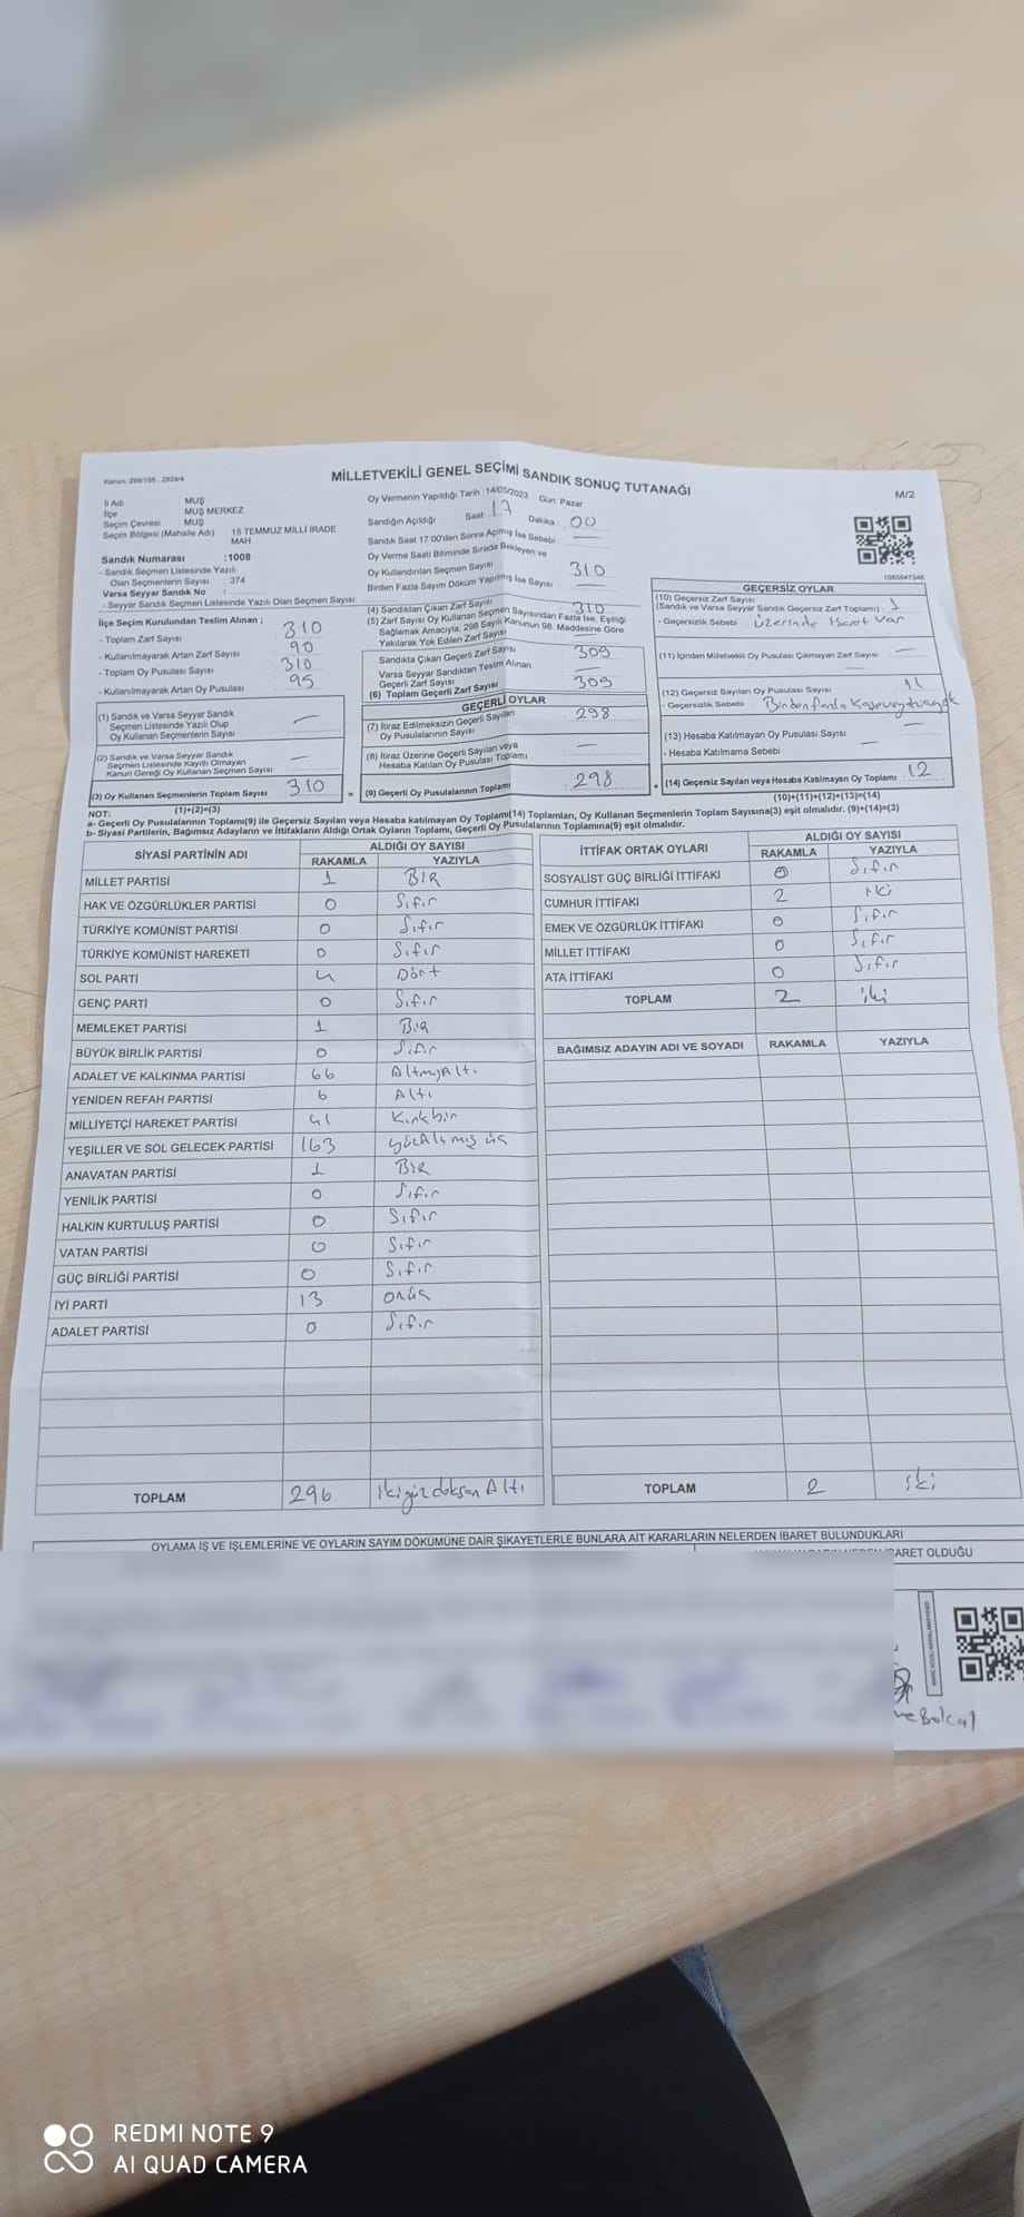 MİLLETVEKİLİ GENEL SEÇİMİ SANDIK SONUÇ TUTANAĞI
M/2
İl Adı MUŞ
İlçe MUŞ MERKEZ
Seçim Çevresi MUŞ
Seçim Bölgesi (Mahalle Adı) 15 TEMMUZ MİLLİ İRADE MAH
Sandık Numarası :1008
- Sandık Seçmen Listesinde Yazılı
Olan Seçmenlerin Sayısı 374
Varsa Seyyar Sandık No :
- Seyyar Sandık Seçmen Listesinde Yazılı Olan Seçmen Sayısı
İlçe Seçim Kurulundan Teslim Alınan ;
- Toplam Zarf Sayısı 310
- Kullanılmayarak Artan Zarf Sayısı 90
- Toplam Oy Pusulası Sayısı 310
- Kullanılmayarak Artan Oy Pusulası 95
(1) Sandık ve Varsa Seyyar Sandık
Seçmen Listesinde Yazılı Olup
Oy Kullanan Seçmenlerin Sayısı —
(2) Sandık ve Varsa Seyyar Sandık
Seçmen Listesinde Kayıtlı Olmayan
Kanun Gereği Oy Kullanan Seçmen Sayısı —
(3) Oy Kullanan Seçmenlerin Toplam Sayısı 310
(1)+(2)=(3)
Oy Vermenin Yapıldığı Tarih :14/05/2023 Gün: Pazar
Sandığın Açıldığı Saat: 17 Dakika : 00
Sandık Saat 17:00'den Sonra Açılmış İse Sebebi : —
Oy Verme Saati Bitiminde Sırada Bekleyen ve
Oy Kullandırılan Seçmen Sayısı 310
Birden Fazla Sayım Döküm Yapılmış İse Sayısı —
(4) Sandıktan Çıkan Zarf Sayısı 310
(5) Zarf Sayısı Oy Kullanan Seçmen Sayısından Fazla İse, Eşitliği
Sağlamak Amacıyla; 298 Sayılı Kanunun 98. Maddesine Göre
Yakılarak Yok Edilen Zarf Sayısı —
Sandıkta Çıkan Geçerli Zarf Sayısı 309
Varsa Seyyar Sandıktan Teslim Alınan
Geçerli Zarf Sayısı —
(6) Toplam Geçerli Zarf Sayısı 309
GEÇERLİ OYLAR
(7) İtiraz Edilmeksizin Geçerli Sayılan
Oy Pusulalarının Sayısı 298
(8) İtiraz Üzerine Geçerli Sayılan veya
Hesaba Katılan Oy Pusulası Toplamı —
(9) Geçerli Oy Pusulalarının Toplamı 298
GEÇERSİZ OYLAR
(10) Geçersiz Zarf Sayısı
(Sandık ve Varsa Seyyar Sandık Geçersiz Zarf Toplamı) : 1
- Geçersizlik Sebebi Üzerinde İşaret var
(11) İçinden Milletvekili Oy Pusulası Çıkmayan Zarf Sayısı —
(12) Geçersiz Sayılan Oy Pusulası Sayısı 11
- Geçersizlik Sebebi Birden fazla
(13) Hesaba Katılmayan Oy Pusulası Sayısı —
- Hesaba Katılmama Sebebi
(14) Geçersiz Sayılan veya Hesaba Katılmayan Oy Toplamı 12
(10)+(11)+(12)+(13)=(14)
NOT:
a- Geçerli Oy Pusulalarının Toplamı(9) ile Geçersiz Sayılan veya Hesaba katılmayan Oy Toplamı(14) Toplamları, Oy Kullanan Seçmenlerin Toplam Sayısına(3) eşit olmalıdır. (9)+(14)=(3)
b- Siyasi Partilerin, Bağımsız Adayların ve İttifakların Aldığı Ortak Oyların Toplamı, Geçerli Oy Pusulalarının Toplamına(9) eşit olmalıdır.
SİYASİ PARTİNİN ADI ALDIĞI OY SAYISI
RAKAMLA YAZIYLA
MİLLET PARTİSİ 1 BİR
HAK VE ÖZGÜRLÜKLER PARTİSİ 0 Sıfır
TÜRKİYE KOMÜNİST PARTİSİ 0 Sıfır
TÜRKİYE KOMÜNİST HAREKETİ 0 Sıfır
SOL PARTİ 4 Dört
GENÇ PARTİ 0 Sıfır
MEMLEKET PARTİSİ 1 Bir
BÜYÜK BİRLİK PARTİSİ 0 Sıfır
ADALET VE KALKINMA PARTİSİ 66 AltmışAltı
YENİDEN REFAH PARTİSİ 6 Altı
MİLLİYETÇİ HAREKET PARTİSİ 41 Kırkbir
YEŞİLLER VE SOL GELECEK PARTİSİ 163 yüzAltmış üç
ANAVATAN PARTİSİ 1 BİR
YENİLİK PARTİSİ 0 Sıfır
HALKIN KURTULUŞ PARTİSİ 0 Sıfır
VATAN PARTİSİ 0 Sıfır
GÜÇ BİRLİĞİ PARTİSİ 0 Sıfır
İYİ PARTİ 13 onüç
ADALET PARTİSİ 0 Sıfır
TOPLAM 296 ikiyüz doksan Altı
İTTİFAK ORTAK OYLARI ALDIĞI OY SAYISI
RAKAMLA YAZIYLA
SOSYALİST GÜÇ BİRLİĞİ İTTİFAKI 0 Sıfır
CUMHUR İTTİFAKI 2 iki
EMEK VE ÖZGÜRLÜK İTTİFAKI 0 Sıfır
MİLLET İTTİFAKI 0 Sıfır
ATA İTTİFAKI 0 Sıfır
TOPLAM 2 iki
BAĞIMSIZ ADAYIN ADI VE SOYADI RAKAMLA YAZIYLA
TOPLAM 2 iki
OYLAMA İŞ VE İŞLEMLERİNE VE OYLARIN SAYIM DÖKÜMÜNE DAİR ŞİKAYETLERLE BUNLARA AİT KARARLARIN NELERDEN İBARET BULUNDUKLARI
BARET OLDUĞU
REDMI NOTE 9
AI QUAD CAMERA